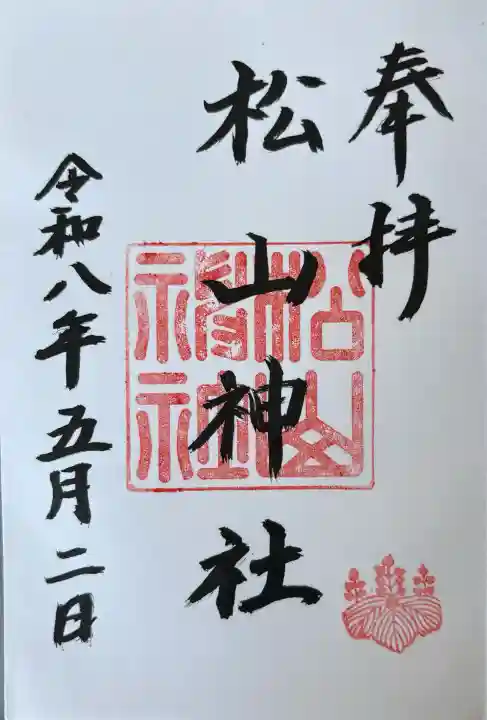 奉拝
松山神社
松山神社
令和八年五月二日